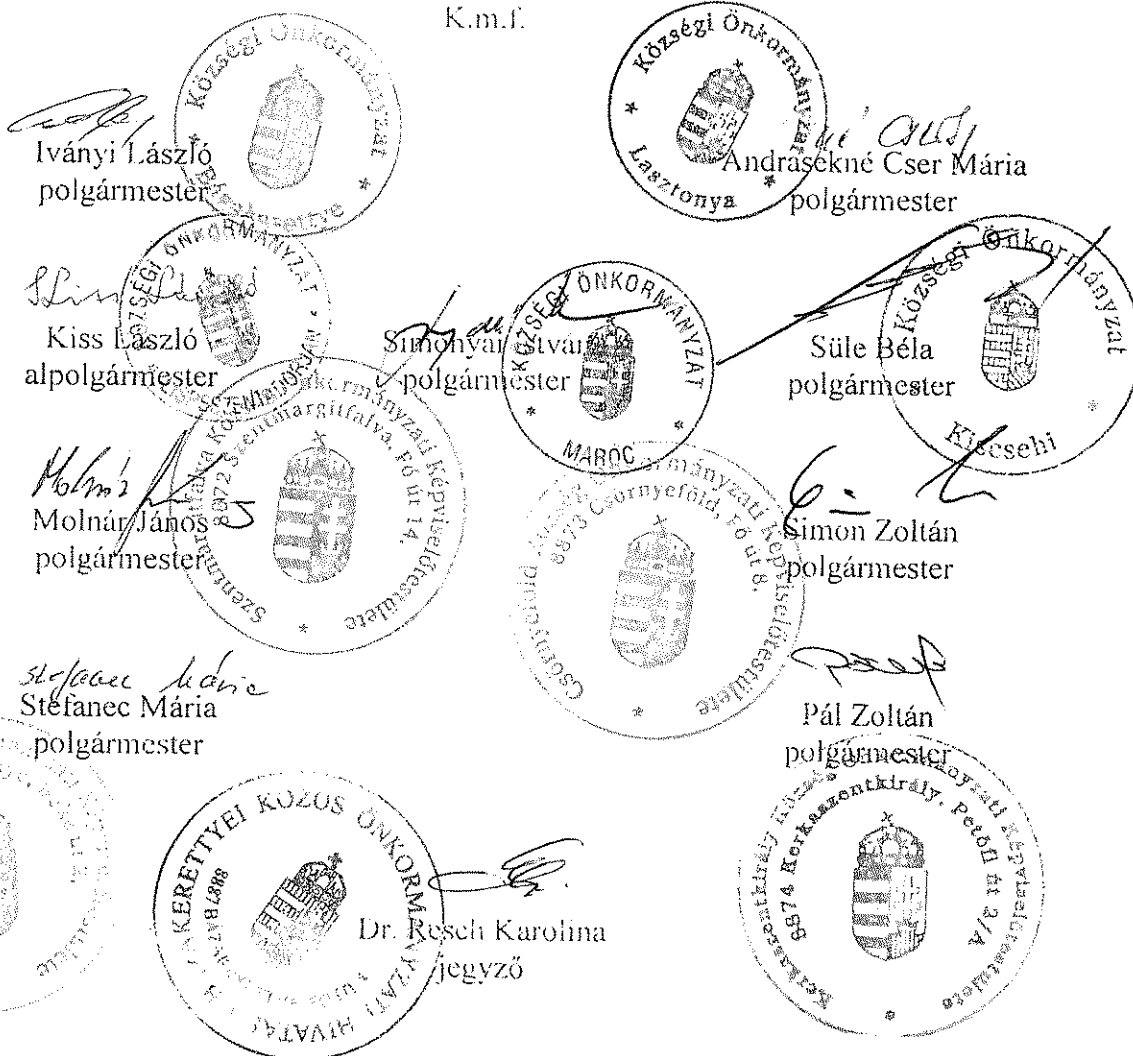 K.m.f.
Községi Önkormányzat
Iványi László
polgármester
Községi Önkormányzat
Lasztonya
Andrasekné Cser Mária
polgármester
KÖZSÉGI ÖNKORMÁNYZAT
Kiss László
alpolgármester
Simonyai István
polgármester
KÖZSÉGI ÖNKORMÁNYZAT
MARÓC
Süle Béla
polgármester
Községi Önkormányzat
Kiscsehi
Molnár János
polgármester
Szentmargitfalva Község Önkormányzati Képviselőtestülete
8872 Szentmargitfalva, Fő út 14.
Csörnyeföld Község Önkormányzati Képviselőtestülete
8873 Csörnyeföld, Fő út 8.
Simon Zoltán
polgármester
Stefanec Mária
Stefanec Mária
polgármester
Pál Zoltán
polgármester
Kerkaszentkirály Község Önkormányzati Képviselőtestülete
8874 Kerkaszentkirály, Petőfi út 2/A
KERETTYEI KÖZÖS ÖNKORMÁNYZATI HIVATAL
Dr. Resch Karolina
jegyző